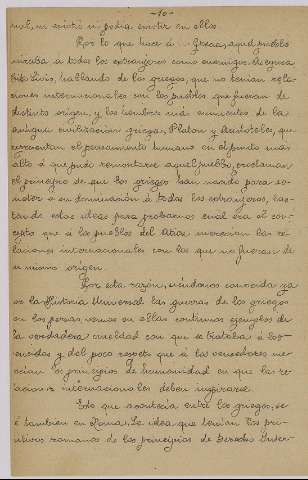 -10-
ni existió ni podía existir en ellos.
Por lo que hace á Grecia, aquel pueblo
miraba á todos los extranjeros como enemigos. Asegura
Tito Livio, hablando de los griegos, que no tenían rela-
ciones internacionales con los pueblos que fueran de
distinto origen, y los hombres más eminentes de la
antigua civilización griega, Platon y Aristóteles, que
representan el pensamiento humano en el grado más
alto á que pudo remontarse aquel pueblo, proclaman
el principio de que los griegos han nacido para so-
meter a su dominación á todos los extranjeros, bas-
tando estas ideas para probarnos cuál era el con-
cepto que á los pueblos del Atica merecían las re-
laciones internacionales con los que no fueran de
su mismo origen.
Por esta razón, siéndonos conocida ya
por la Historia Universal las guerras de los griegos
con los persas, vemos en ellas continuos ejemplos de
la verdadera crueldad con que se trataba á los
vencidos y del poco respeto que á los vencedores me-
recían los principios de humanidad en que las re-
laciones internacionales deben inspirarse.
Esto que acontecía entre los griegos, se
vé también en Roma. La idea que tenían los pri-
mitivos romanos de los principios de Derecho Inter-